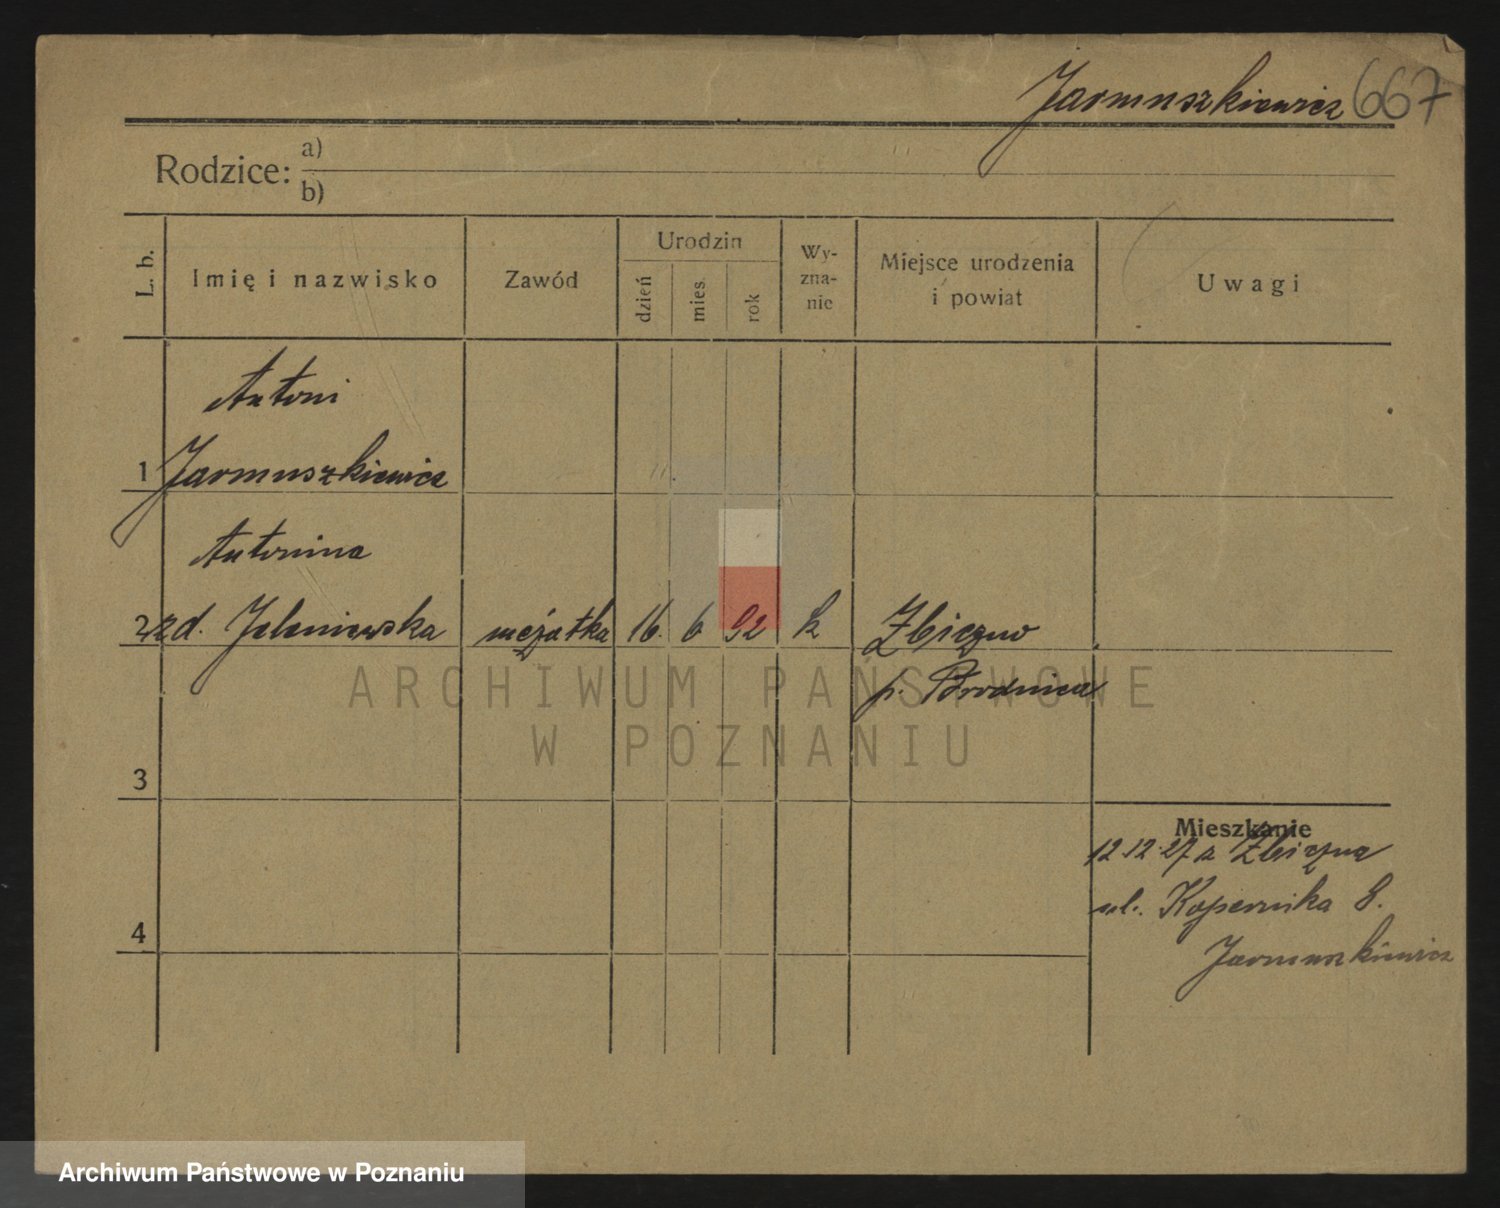 Jarmuszkiewicz 667
Rodzice: a)
b)
L. b.
Imię i nazwisko
Zawód
Urodzin
dzień
mies.
rok
Wy-
zna-
nie
Miejsce urodzenia
i powiat
Uwagi
Antoni
1 Jarmuszkiewicz
Antonina
2 zd. Jeleniewska mężatka 16. 6 92 k Zbiczno
p. Brodnica
ARCHIWUM PAŃSTWOWE
W POZNANIU
3
Mieszkanie
12.12.27 z Zbiczna
ul. Kopernika 8.
4
Jarmuszkiewicz
Archiwum Państwowe w Poznaniu